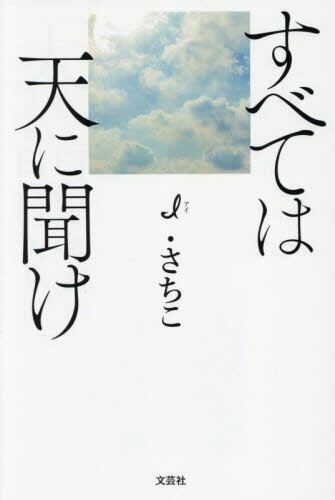 すべては
天に聞け
アイ
I・さちこ
文芸社